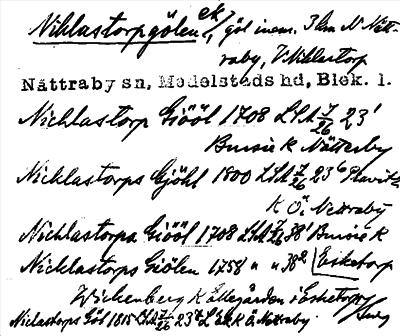 Nicklastorpgölen ek/, göl inem. 3 km N Nätt-
raby, V Nicklastorp
Nättraby sn, Medelstads hd, Blek. l.
Nichlastorp Giööl 1708 LSA 7/26 23¹
Bursie K Nätterby
Nicklastorps Gjöhl 1800 LSA 7/26 23⁶
K Ö. Nettraby
Nichlastorps Giööl 1708 LSA 38¹ Bursie K
Nicklastorps Giölen 1758 " " 38² Esketorp
Wickenberg K Ällegården i Esketorp
Niclastorps Göl 1815 LSA 7/26 23 K Ö Nettraby.